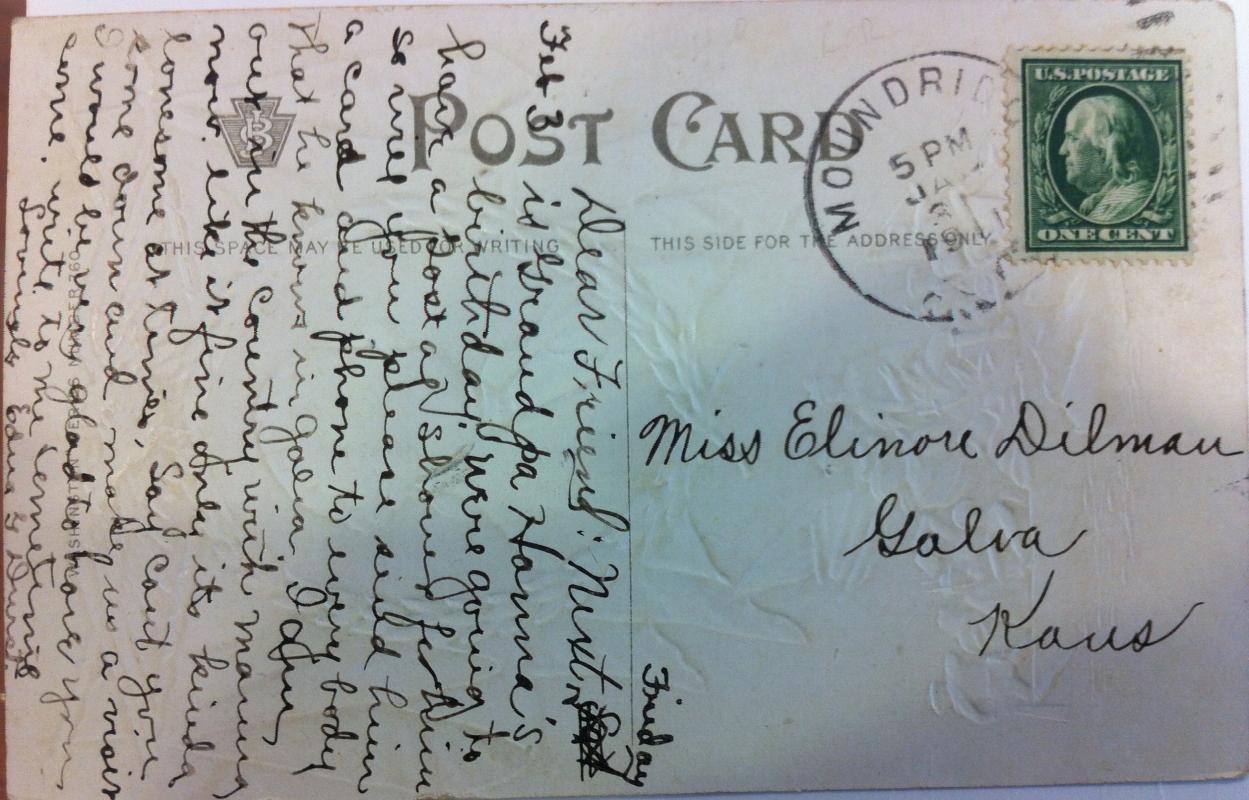 POST CARD
THIS SPACE MAY BE USED FOR WRITING
THIS SIDE FOR THE ADDRESS ONLY
MOUNDRIDGE
5 PM
U.S. POSTAGE
ONE CENT
Miss Elinore Dilman
Galva
Kans
Friday
Dear Friend: Next
Feb 3 is Grandpa Hanna's
birthday, were going to
have a Post ad shower for him
so will you please send him
a card and phone to every body
that he knows in Galva I am
out in the Country with Mamma
now. like it fine only its kinda
lonesome at times, Say cant you
come down and make us a visit
I would be very glad to have you
come. write to me sometime
Lovingly Edna